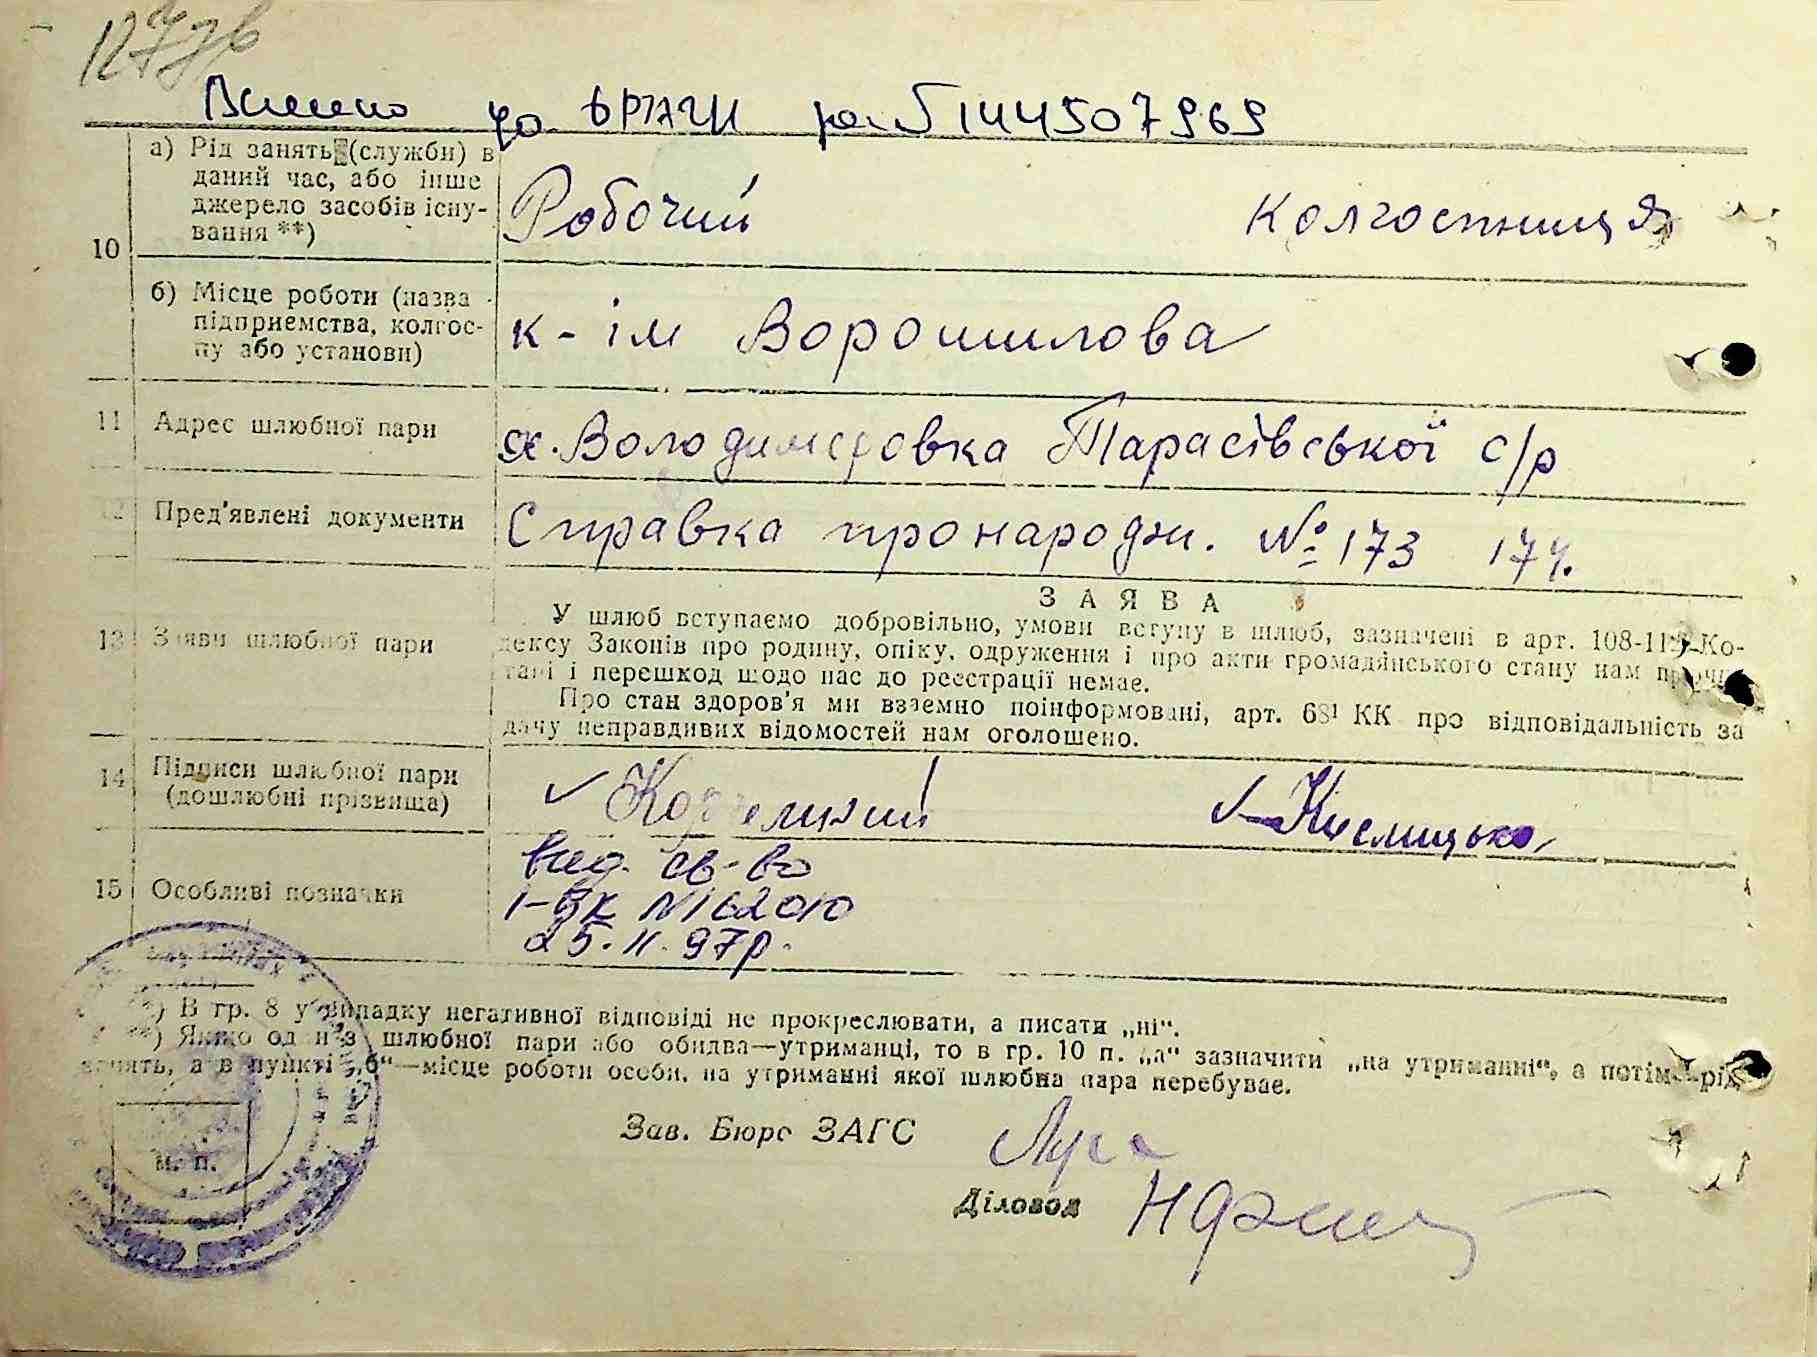 127 зв
Внесено до ДРАЦС за № 144507969
а) Рід занять (служби) в
даний час, або інше
джерело засобів існу-
вання **)
Робочий Колгоспниця
10
б) Місце роботи (назва
підприємства, колгос-
пу або установи)
к-ім Ворошилова
11 Адрес шлюбної пари
х. Володимировка Тарасівської с/р
12 Пред'явлені документи
Справка про народжн. № 173 174.
ЗАЯВА
13 Заяви шлюбної пари
У шлюб вступаємо добровільно, умови вступу в шлюб, зазначені в арт. 108-112 Ко-
дексу Законів про родину, опіку, одруження і про акти громадянського стану нам прочи-
тані і перешкод щодо нас до реєстрації немає.
Про стан здоров'я ми взаємно поінформовані, арт. 68¹ КК про відповідальність за
дачу неправдивих відомостей нам оголошено.
14 Підписи шлюбної пари
(дошлюбні прізвища)
Кислицька
15 Особливі позначки
вид. св-во
І-БК №162010
25.11.97р.
*) В гр. 8 у випадку негативної відповіді не прокреслювати, а писати „ні“.
**) Якщо один із шлюбної пари або обидва—утриманці, то в гр. 10 п. „а“ зазначити „на утриманні“, а потім рід
занять, а в пункті „б“—місце роботи особи, на утриманні якої шлюбна пара перебуває.
Зав. Бюро ЗАГС
Діловод
м. п.